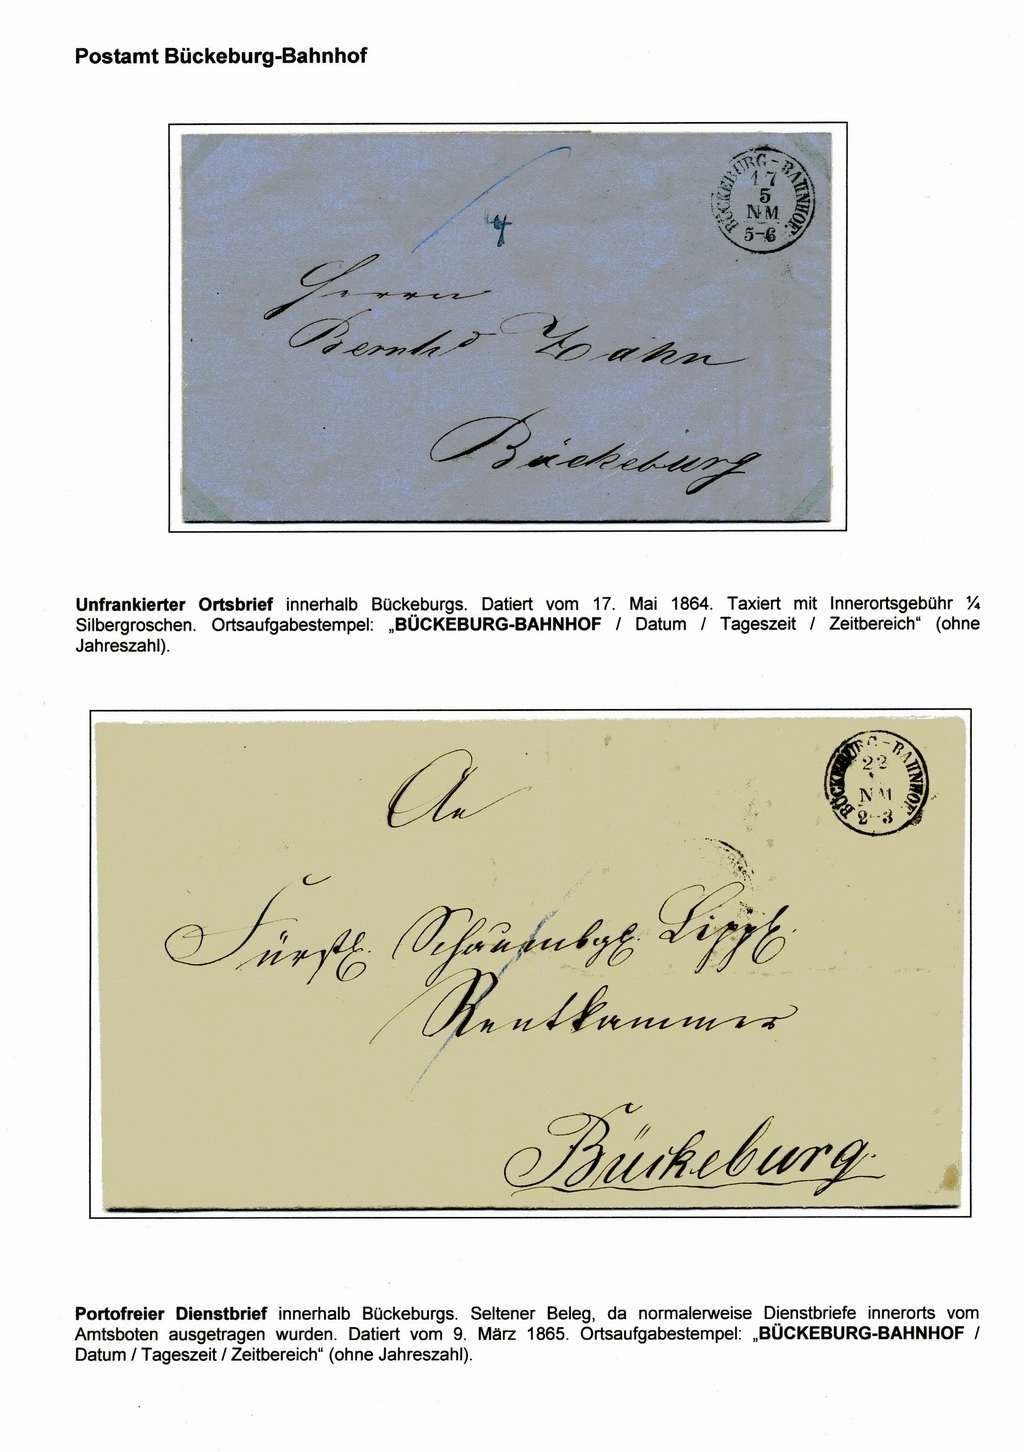 Postamt Bückeburg-Bahnhof
BÜCKEBURG-BAHNHOF.
17
5
NM
5-6
1/4
Herrn
Bernhd Zahn
Bückeburg
Unfrankierter Ortsbrief innerhalb Bückeburgs. Datiert vom 17. Mai 1864. Taxiert mit Innerortsgebühr ¼
Silbergroschen. Ortsaufgabestempel: „BÜCKEBURG-BAHNHOF / Datum / Tageszeit / Zeitbereich“ (ohne
Jahreszahl).
BÜCKEBURG-BAHNHOF.
22
NM
2-3
An
Fürstl. Schaumbg. Lippl.
Rentkammer
Bückeburg.
Portofreier Dienstbrief innerhalb Bückeburgs. Seltener Beleg, da normalerweise Dienstbriefe innerorts vom
Amtsboten ausgetragen wurden. Datiert vom 9. März 1865. Ortsaufgabestempel: „BÜCKEBURG-BAHNHOF /
Datum / Tageszeit / Zeitbereich“ (ohne Jahreszahl).